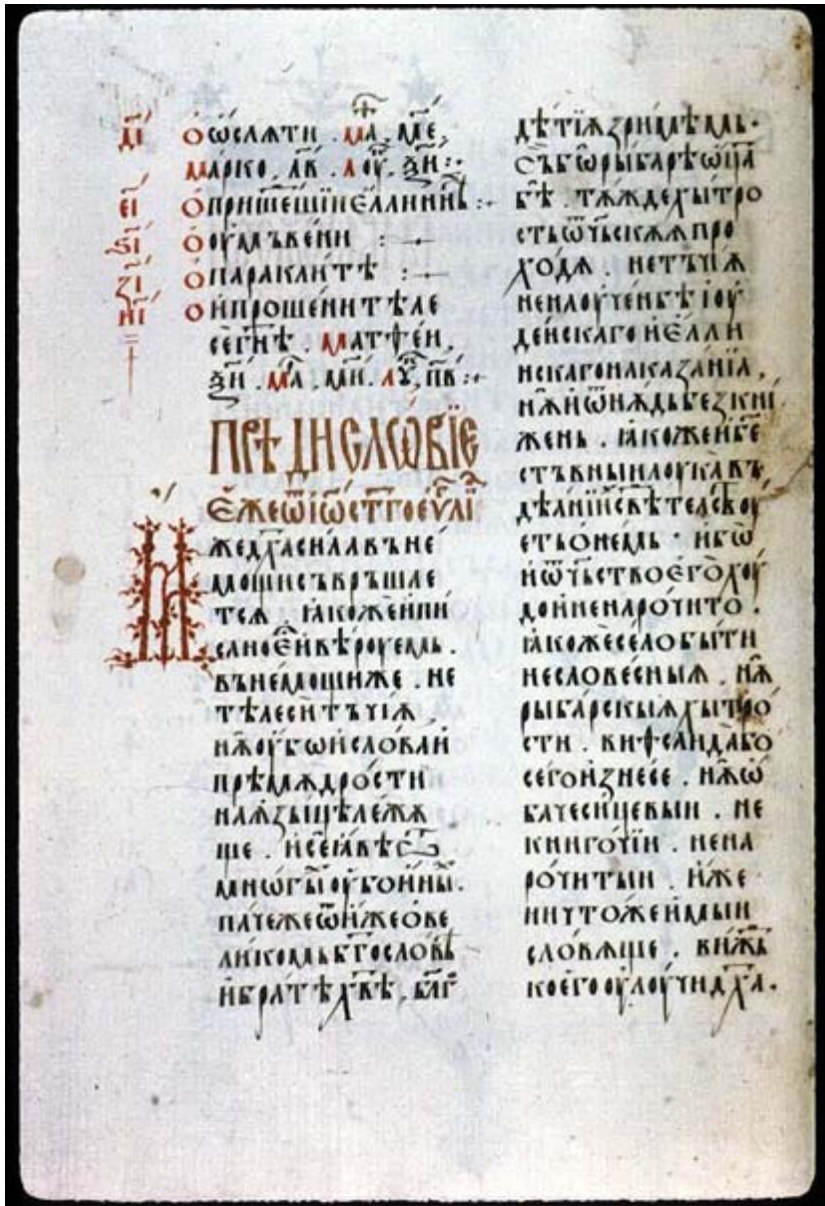 д҃і О ѡслѧти . м҃а . м҃е .
марко . л҃в . лоу҃ . з҃и :·
е҃і О пришеⷣшїи еллинѣⷯ :·
ѕ҃і О оумъвени :·
з҃і О параклитѣ :·
и҃і О и҆спрошени тѣле
се гн҃ѣ . матѳеи .
з҃и . м҃а . м҃и . лоу҃ . п҃в :·
ПРѢДИСЛѠВЇЕ
Еже ѿ іѡ ст҃го еѵⷢ҇лїа
Иже дх҃а сила въ не
мощи съврьшае
тсѧ . ꙗкоже и пи
сано е҆ и вѣроуемь .
въ немощи же . не
тѣлеси тъчїѧ ,
нѫ оубѡ и слова и
прѣмѫдрости
на ѧзыцѣ лежѧ
ще . и се ꙗвѣ ѿ
мнѡгыⷯ оубо инѣⷯ .
паче же ѿ иже о ве
ликомь бг҃ословⷭ҇ѣ
и братѣ хв҃ѣ . блг҃
дѣтїѧ зримѣмь .
Съ бѡ рыбарѣ ѡц҃а
бѣ . тѫжде хытро
сть ѿчьскѫѧ про
ходѧ . не тъчїѫ
ненаоучень бѣ іоу
деискаго и елли
нскаго наказанїа ,
нѫ и ѿнѫдь безкни
жень . ꙗкоже и бж҃е
стъвныи лоука въ
дѣанїи свѣтелⷭ҇ьствоу
етъ о немь · ибѡ
и ѿчьство его хоу
до и ненарочито .
ꙗкоже село быти
несловесныѧ . нѫ
рыбарскыѧ хытро
сти . виѳсаида бо
сего изнесе . нѫ ѡ
баче сицевыи . не
книгочїи . нена
рочитыи . иже
ничтоже имыи
словѧще . вижⷣь
коего оулоучи дх҃а .